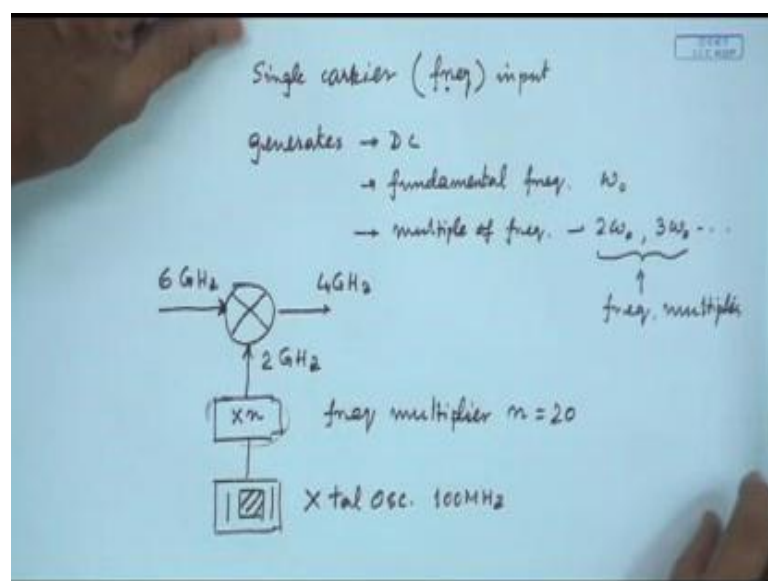 Single carrier (freq) input
generates → DC
→ fundamental freq. ω₀
→ multiple of freq. – 2ω₀, 3ω₀ ...
freq. multiplier
6 GHz
4GHz
2 GHz
xn
freq multiplier n = 20
X tal Osc. 100MHz